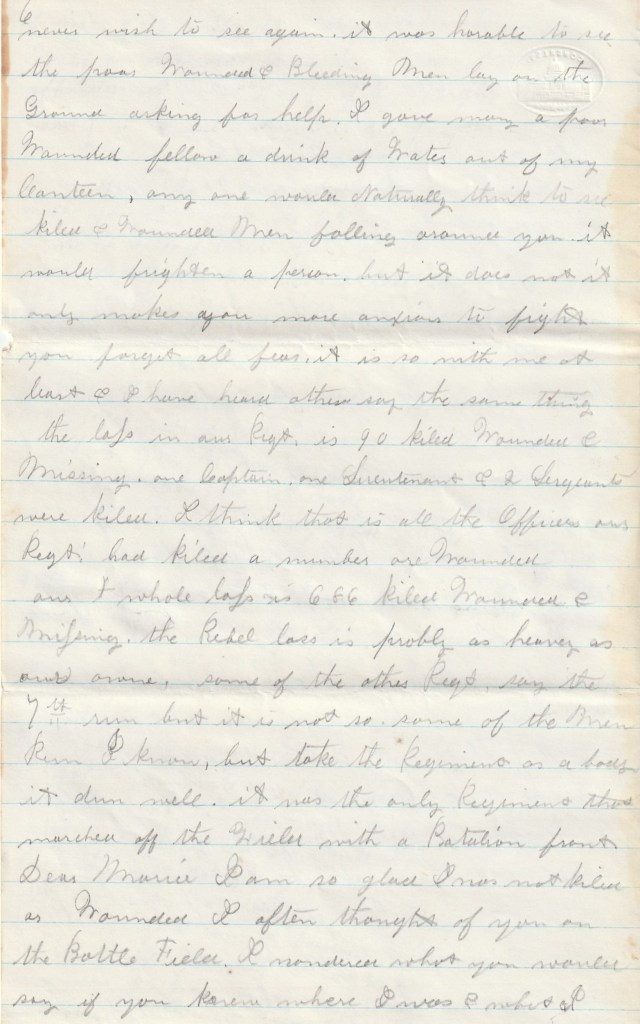 never wish to see again. it was horable to see
the poor Wounded & Bleeding Men lay on the
Ground asking for help. I gave many a poor
Wounded fellow a drink of Water out of my
Canteen, any one would Naturally think to see
killed & Wounded Men falling around you it
would frighten a person. but it does not it
only makes you more anxious to fight
you forget all fear. it is so with me at
least & I have heard others say the same thing
the loss in our Regt. is 90 killed Wounded &
Missing. one Captain. one Lieutenant & 2 Sergeants
were killed. I think that is all the Officers our
Regt had killed a number are Wounded
our whole loss is 686 killed Wounded &
Missing. the Rebel loss is probly as heavey as
our owne, some of the other Regt, say the
7th run but it is not so. some of the Men
Run I know, but take the Regiment as a body
it dun well. it was the only Regiment that
marched off the Field with a Batalion front
Dear Marié I am so glad I was not killed
or Wounded I often thought of you on
the Battle Field. I wondered what you would
say if you knew where I was & what I